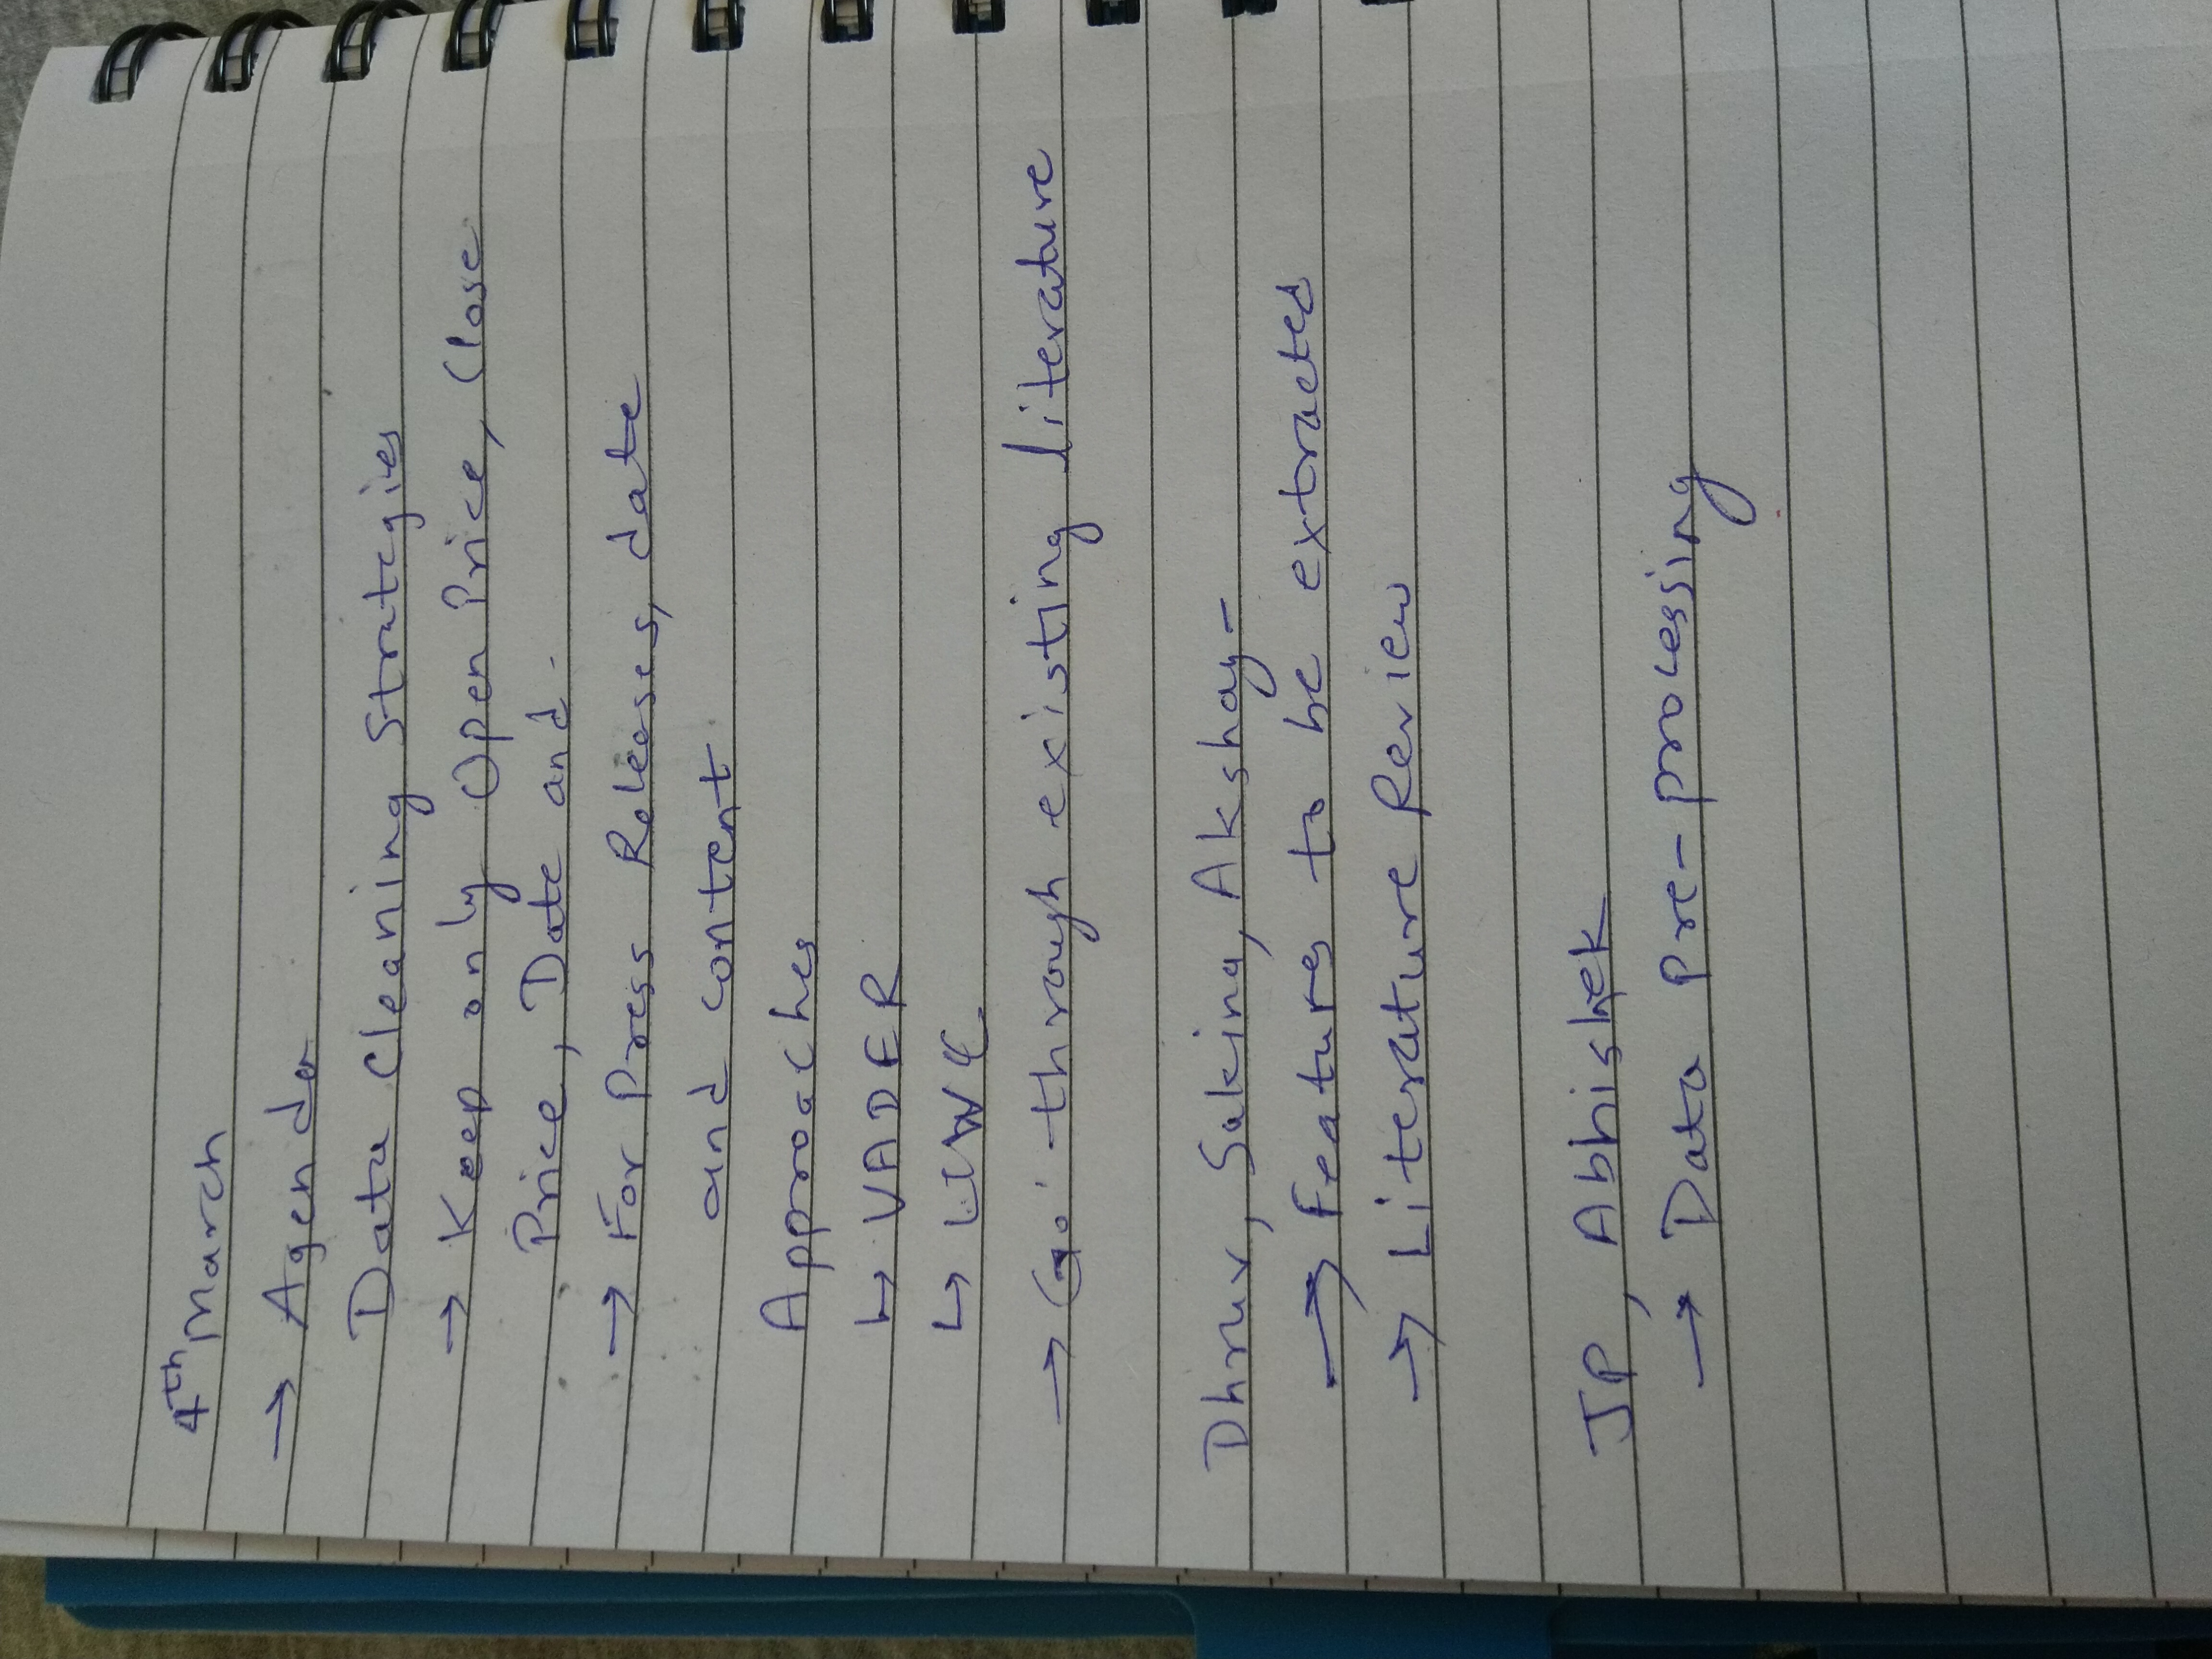 4th March
→ Agenda
Data Cleaning Strategies
→ Keep only Open Price, Close
Price, Date and -
→ For Press Releases, date
and content
Approaches
↳ VADER
↳ LIWC
→ Go through existing literature
Dhruv, Sakina, Akshay -
→ Features to be extracted
→ Literature Review
JP, Abhishek
→ Data Pre-processing